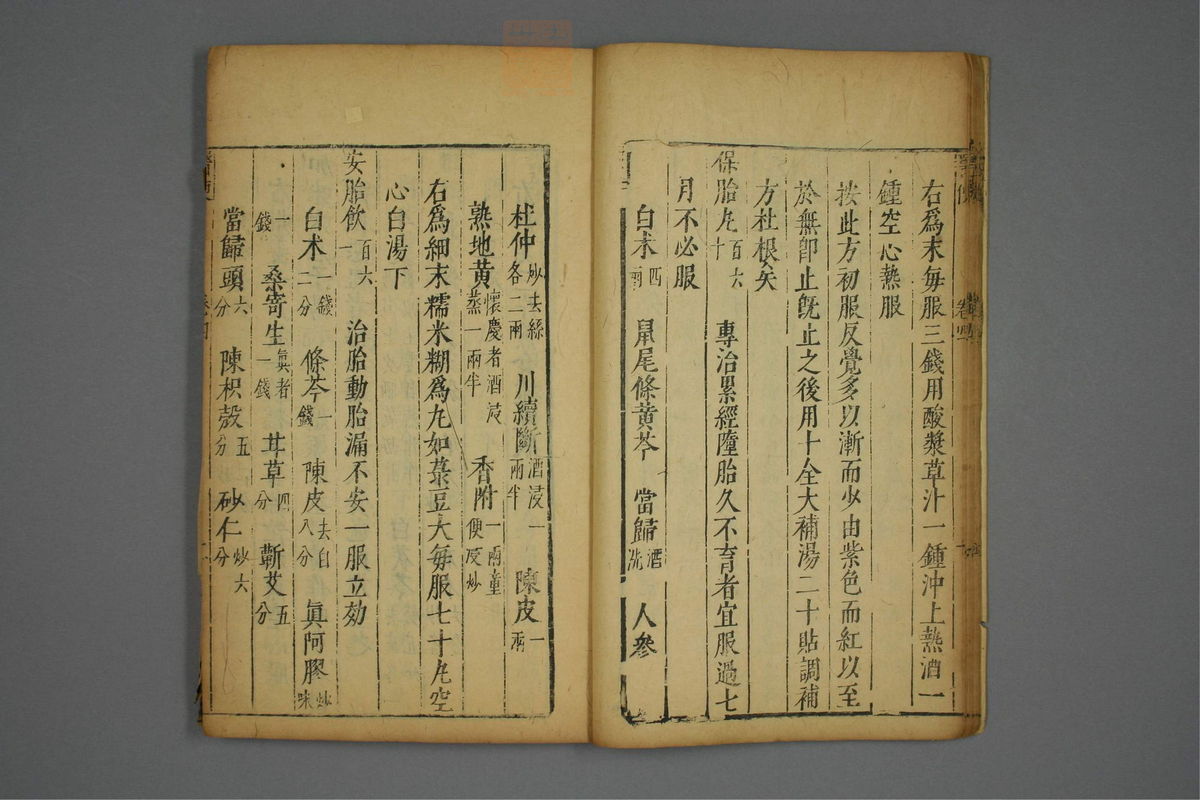 右爲末每服三錢用酸漿草汁一鍾沖上熱酒一
鍾空心熱服
按此方初服反覺多以漸而少由紫色而紅以至
於無卽止旣止之後用十全大補湯二十貼調補
方杜根矣
保胎丸百六十 專治累經墮胎久不育者宜服過七
月不必服
白朮四兩 鼠尾條黃芩 當歸酒洗 人參
杜仲炒去絲各二兩 川續斷酒浸一兩半 陳皮一兩
熟地黃懷慶者酒浸蒸一兩半 香附一兩童便浸炒
右爲細末糯米糊爲丸如菉豆大每服七十丸空
心白湯下
安胎飲百六一 治胎動胎漏不安一服立効
白朮一錢二分 條芩一錢 陳皮去白八分 眞阿膠炒珠
一錢 桑寄生眞者一錢 甘草四分 蘄艾五分
當歸頭六分 陳枳殼五分 砂仁炒六分